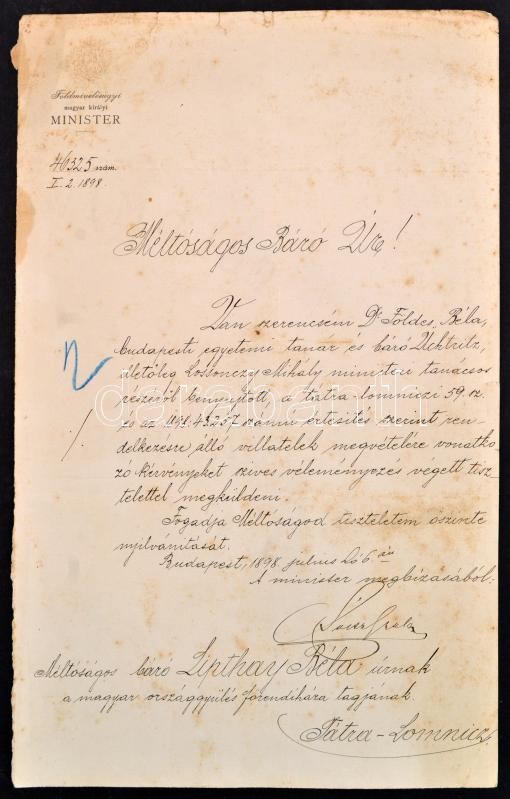 Földmívelésügyi
magyar királyi
MINISTER
46325 szám.
I. 2. 1898.
Méltóságos Báró Úr!
Van szerencsém Dr Földes Béla,
budapesti egyetemi tanár és báró Üchtritz,
illetőleg Lossonczy Mihály ministeri tanácsos
részéről benyujtott, a tátra-lomniczi 59. sz.
és az 43257 számu értesités szerint ren-
delkezésre álló villatelek megvételére vonatko-
zó kérvényeket szives véleményezés végett tisz-
telettel megküldeni.
Fogadja Méltóságod tiszteletem őszinte
nyilvánitását.
Budapest, 1898. julius hó 6-án
A minister megbizásából:
Méltóságos báró Lipthay Béla úrnak
a magyar országgyülés főrendiháza tagjának.
Tátra-Lomnicz.
darabanth